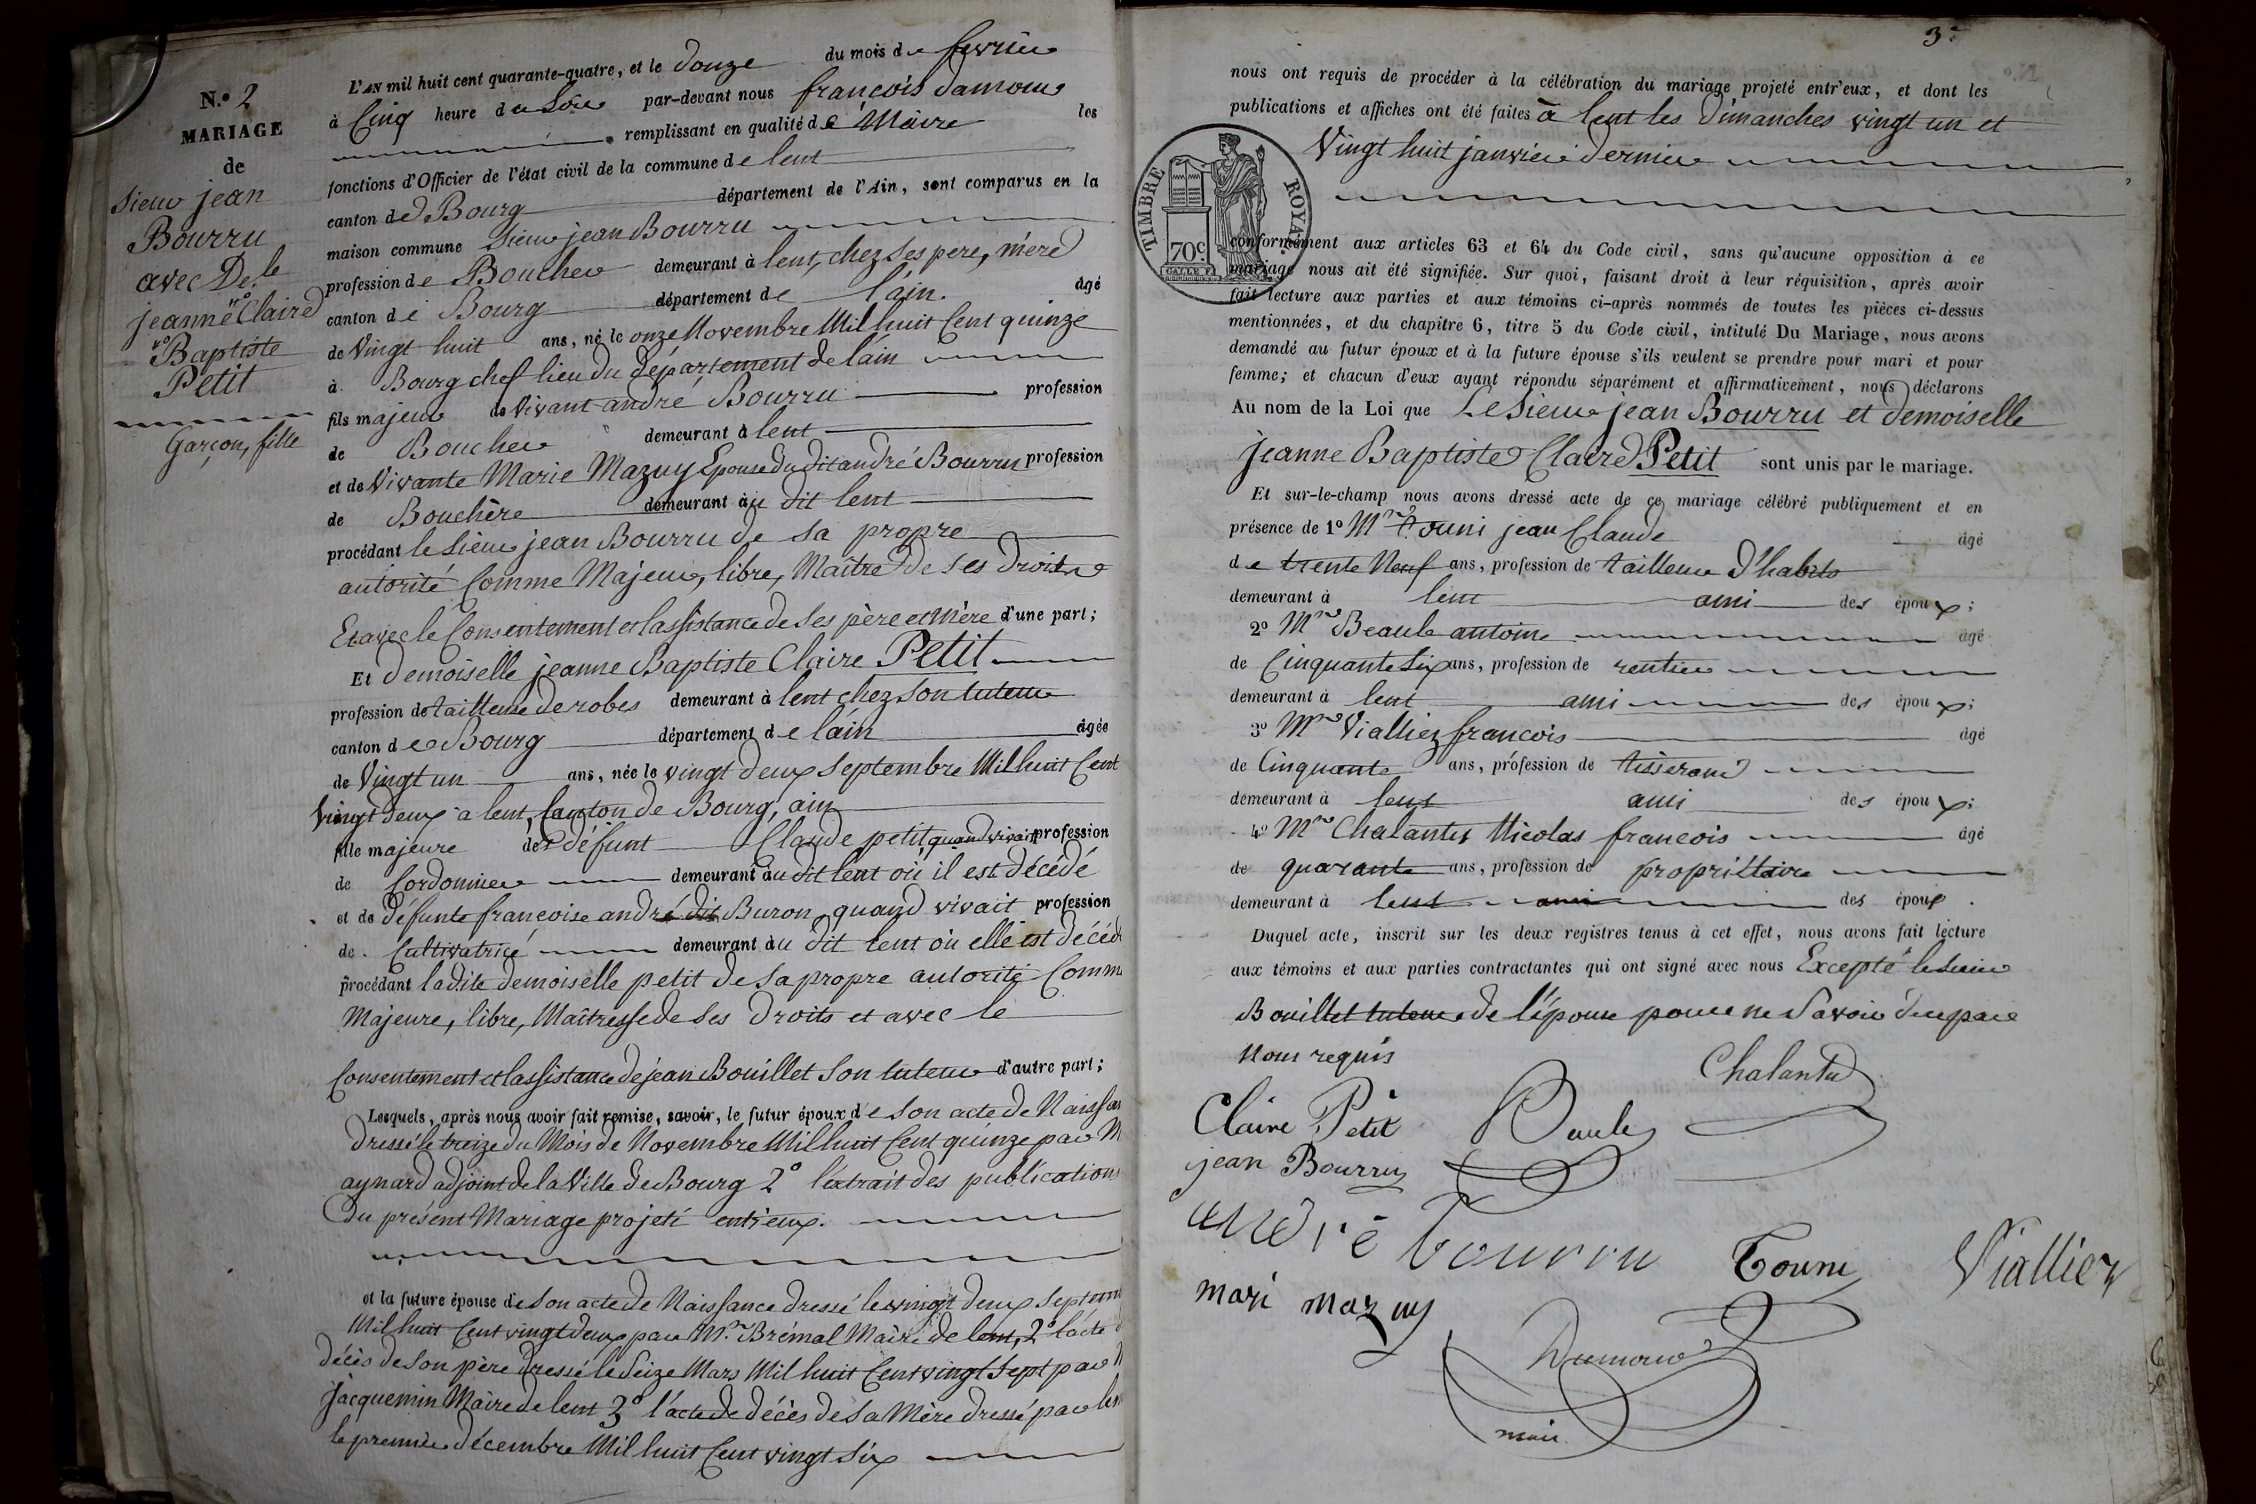 N.º 2
MARIAGE
de
Sieur jean
Bourru
avec De.lle
jeanne Claire
Baptiste
Petit
Garçon, fille
L'AN mil huit cent quarante-quatre, et le douze du mois de fevrier
à Cinq heure du soir par-devant nous françois damour
remplissant en qualité de Maire les
fonctions d'Officier de l'état civil de la commune de lent
canton de Bourg département de l'Ain, sont comparus en la
maison commune Sieur jean Bourru
profession de Boucher demeurant à lent, chez ses pere, mere
canton de Bourg département de l'ain. âgé
de Vingt huit ans, né le onze Novembre Mil huit Cent quinze
à Bourg chef lieu du département de l'ain
fils majeur de Vivant andré Bourru profession
de Boucher demeurant à lent
et de Vivante Marie Mazuy Epouse du dit andré Bourru profession
de Bouchère demeurant au dit lent
procédant le Sieur jean Bourru de sa propre
autorité Comme Majeur, libre, Maître de ses droits
Et avec le Consentement et l'assistance de ses père et Mère d'une part;
Et demoiselle jeanne Baptiste Claire Petit
profession de tailleuse de robes demeurant à lent chez son tuteur
canton de Bourg département de l'ain âgée
de Vingt un ans, née le vingt deux septembre Mil huit Cent
Vingt deux a lent Canton de Bourg, ain
fille majeure de défunt Claude petit quand vivait profession
de Cordonnier demeurant au dit lent où il est décédé
et de défunte françoise andré dit Buron, quand vivait profession
de Cultivatrice demeurant au dit lent où elle est décédé
procédant ladite demoiselle petit de sa propre autorité Comm
Majeure, libre, Maîtresse de ses droits et avec le
Consentement et l'assistance de jean Bouillet son tuteur d'autre part;
Lesquels, après nous avoir fait remise, savoir, le futur époux de son acte de Naissan
dressé le treize du Mois de Novembre Mil huit Cent quinze par M
aynard adjoint de la Ville de Bourg 2º l'extrait des publications
du présent Mariage projeté entr'eux.
et la future épouse de son acte de Naissance dressé le vingt deux septem
Mil huit Cent vingt deux par M.r Brémal Maire de lent, 2º l'acte
décès de son père dressé le Seize Mars Mil huit Cent vingt Sept par
jacquemin Maire de lent 3º l'acte de décès de sa Mère dressé par
le premier décembre Mil huit Cent vingt six
3
nous ont requis de procéder à la célébration du mariage projeté entr'eux, et dont les
publications et affiches ont été faites à lent les dimanches vingt un et
Vingt huit janvier dernier
TIMBRE ROYAL
70c
conformément aux articles 63 et 64 du Code civil, sans qu'aucune opposition à ce
mariage nous ait été signifiée. Sur quoi, faisant droit à leur réquisition, après avoir
fait lecture aux parties et aux témoins ci-après nommés de toutes les pièces ci-dessus
mentionnées, et du chapitre 6, titre 5 du Code civil, intitulé Du Mariage, nous avons
demandé au futur époux et à la future épouse s'ils veulent se prendre pour mari et pour
femme; et chacun d'eux ayant répondu séparément et affirmativement, nous déclarons
Au nom de la Loi que Le Sieur jean Bourru et demoiselle
jeanne Baptiste Claire Petit sont unis par le mariage.
Et sur-le-champ nous avons dressé acte de ce mariage célébré publiquement et en
présence de 1º M.r Touni jean Claude âgé
de trente Neuf ans, profession de tailleur d'habits
demeurant à lent ami des époux;
2º M.r Beaule antoine âgé
de Cinquante Six ans, profession de rentier
demeurant à lent ami des époux;
3º M.r Viallier francois âgé
de Cinquante ans, profession de tisserand
demeurant à lent ami des époux;
4º M.r Chalantu Nicolas francois âgé
de quarante ans, profession de propriétaire
demeurant à lent ami des époux.
Duquel acte, inscrit sur les deux registres tenus à cet effet, nous avons fait lecture
aux témoins et aux parties contractantes qui ont signé avec nous Excepté le Sieur
Bouillet tuteur de l'épouse pour ne savoir de ce par
Nous requis
Chalantu
Claire Petit
Baule
jean Bourru
andré bourru
Touni
Viallier
mari mazuy
Damour
maire